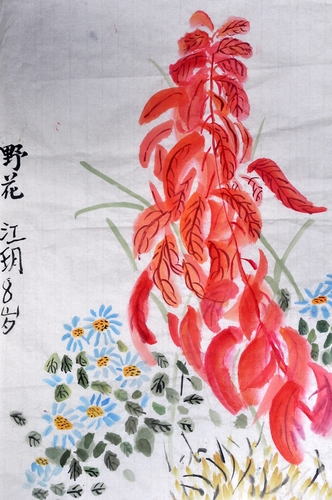 野花 江玥8岁